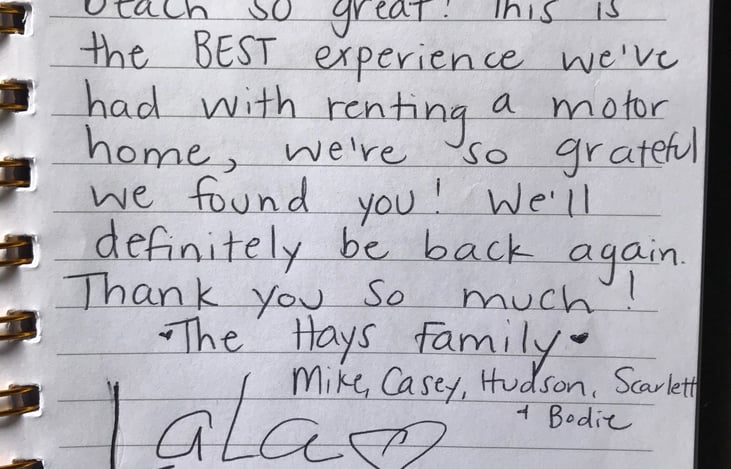 beach so great! This is
the BEST experience we've
had with renting a motor
home, we're so grateful
we found you! We'll
definitely be back again.
Thank you so much!
The Hays Family
Mike, Casey, Hudson, Scarlett
+ Bodie